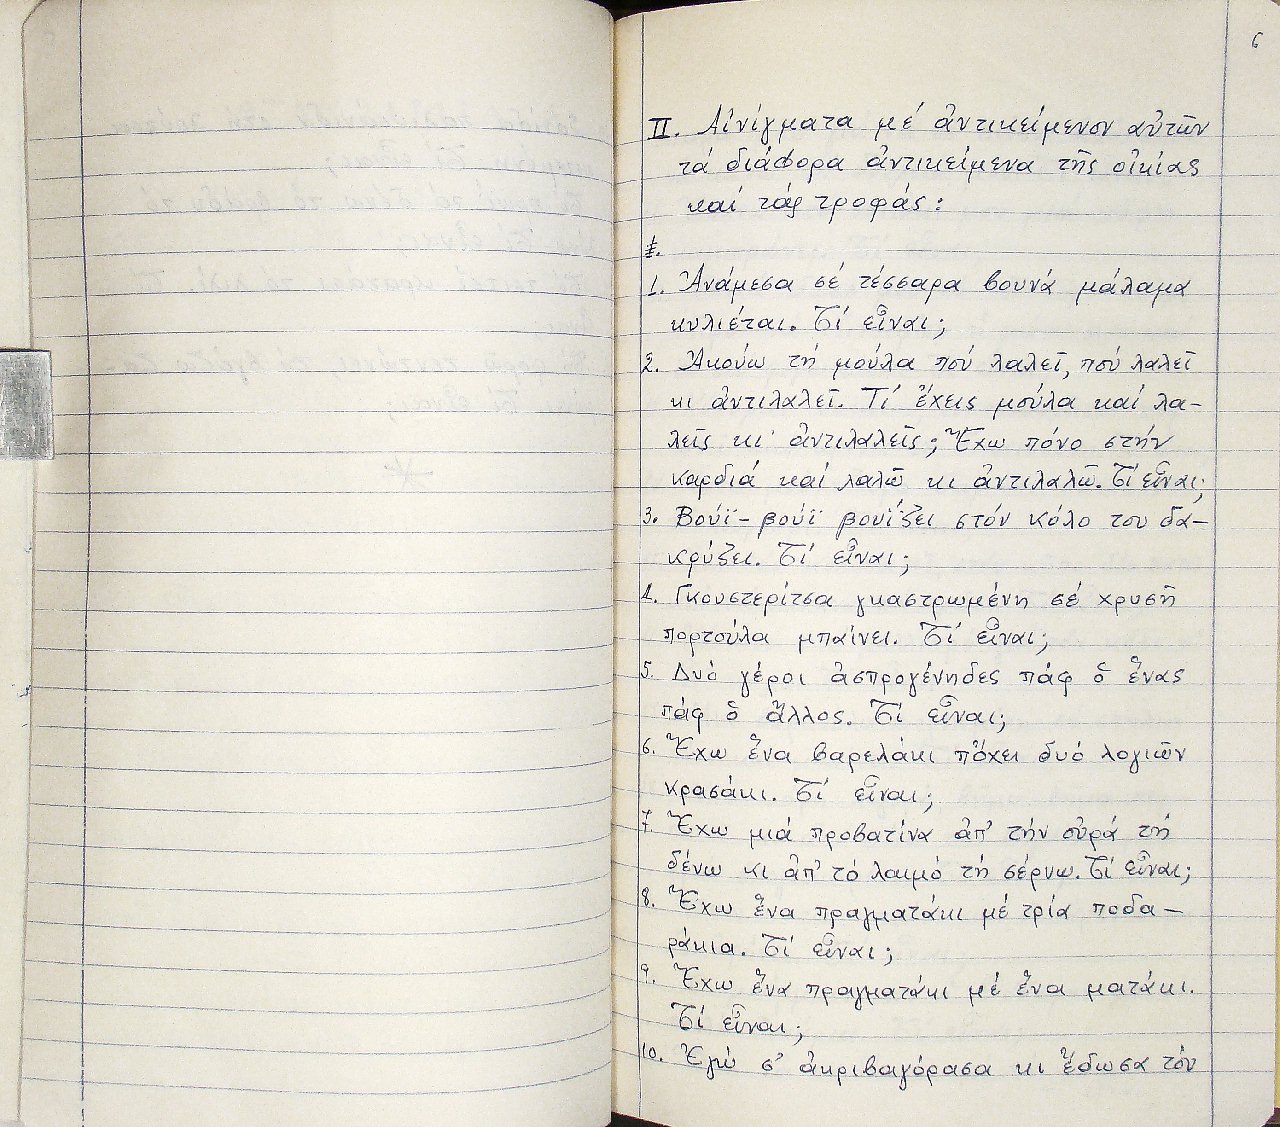 6
II. Αἰνίγματα μέ ἀντικείμενον αὐτῶν
τά διάφορα ἀντικείμενα τῆς οἰκίας
καί τάς τροφάς:
1. Ἀνάμεσα σέ τέσσαρα βουνά μάλαμα
κυλιέται. Τί εἶναι;
2. Ἀκούω τή μούλα πού λαλεῖ, πού λαλεῖ
κι ἀντιλαλεῖ. Τί ἔχεις μούλα καί λα-
λεῖς κι ἀντιλαλεῖς; Ἔχω πόνο στήν
καρδιά καί λαλῶ κι ἀντιλαλῶ. Τί εἶναι;
3. Βούϊ-βούϊ βουΐζει στόν κόλο του δα-
κρύζει. Τί εἶναι;
4. Γκουστερίτσα γκαστρωμένη σέ χρυσῆ
πορτούλα μπαίνει. Τί εἶναι;
5. Δυό γέροι ἀσπρογένηδες πάφ ὁ ἕνας
πάφ ὁ ἄλλος. Τί εἶναι;
6. Ἔχω ἕνα βαρελάκι πὄχει δυό λογιῶν
κρασάκι. Τί εἶναι;
7. Ἔχω μιά προβατίνα ἀπ' τήν οὐρά τή
δένω κι ἀπ' τό λαιμό τή σέρνω. Τί εἶναι;
8. Ἔχω ἕνα πραγματάκι μέ τρία ποδα-
ράκια. Τί εἶναι;
9. Ἔχω ἕνα πραγματάκι μέ ἕνα ματάκι.
Τί εἶναι;
10. Ἐγώ σ' ἀκριβαγόρασα κι ἔδωσα τόν